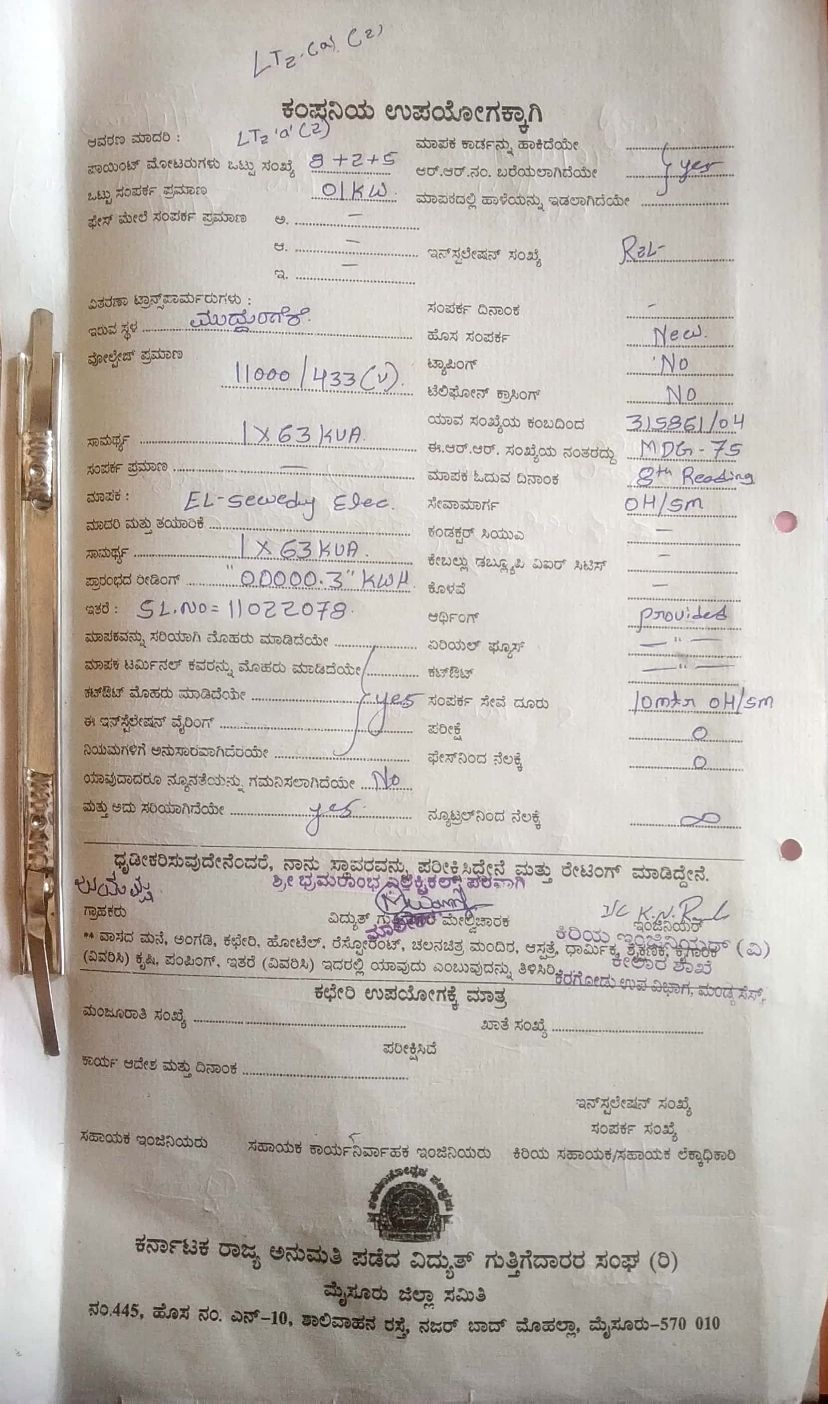 LT2.(a).(2)
ಕಂಪನಿಯ ಉಪಯೋಗಕ್ಕಾಗಿ
ಆವರಣ ಮಾದರಿ : LT2 'a' (2)
ಮಾಪಕ ಕಾರ್ಡನ್ನು ಹಾಕಿದೆಯೇ
ಪಾಯಿಂಟ್ ಮೋಟರುಗಳು ಒಟ್ಟು ಸಂಖ್ಯೆ 8+2+5
ಆರ್.ಆರ್.ನಂ. ಬರೆಯಲಾಗಿದೆಯೇ yes
ಒಟ್ಟು ಸಂಪರ್ಕ ಪ್ರಮಾಣ 01KW.
ಮಾಪಕದಲ್ಲಿ ಹಾಳೆಯನ್ನು ಇಡಲಾಗಿದೆಯೇ
ಫೇಸ್ ಮೇಲೆ ಸಂಪರ್ಕ ಪ್ರಮಾಣ ಅ. –
ಆ. –
ಇನ್‌ಸ್ಟಲೇಷನ್ ಸಂಖ್ಯೆ
ಇ. –
ವಿತರಣಾ ಟ್ರಾನ್ಸ್‌ಪಾರ್ಮರುಗಳು :
ಸಂಪರ್ಕ ದಿನಾಂಕ –
ಇರುವ ಸ್ಥಳ
ಹೊಸ ಸಂಪರ್ಕ New.
ವೋಲ್ಟೇಜ್ ಪ್ರಮಾಣ 11000/433(V).
ಟ್ಯಾಪಿಂಗ್ No
ಟೆಲಿಫೋನ್ ಕ್ರಾಸಿಂಗ್ No
ಯಾವ ಸಂಖ್ಯೆಯ ಕಂಬದಿಂದ 315861/04
ಸಾಮರ್ಥ್ಯ 1 X 63 KVA.
ಈ.ಆರ್.ಆರ್. ಸಂಖ್ಯೆಯ ನಂತರದ್ದು MDG-75
ಸಂಪರ್ಕ ಪ್ರಮಾಣ —
ಮಾಪಕ ಓದುವ ದಿನಾಂಕ 8th Reading
ಮಾಪಕ : EL-Sewedy Elec.
ಸೇವಾಮಾರ್ಗ OH/SM
ಮಾದರಿ ಮತ್ತು ತಯಾರಿಕೆ
ಕಂಡಕ್ಟರ್ ಸಿಯುಎ –
ಸಾಮರ್ಥ್ಯ 1 X 63 KVA.
ಕೇಬಲ್ಲು ಡಬ್ಲ್ಯೂಪಿ ವಿಐರ್ ಸಿಟಿಸ್ –
ಪ್ರಾರಂಭದ ರೀಡಿಂಗ್ "00000.3" KWH
ಕೊಳವೆ –
ಇತರೆ : SL.NO = 11022078.
ಆರ್ಥಿಂಗ್ provided
ಮಾಪಕವನ್ನು ಸರಿಯಾಗಿ ಮೊಹರು ಮಾಡಿದೆಯೇ
ಏರಿಯಲ್ ಫ್ಯೂಸ್ — " —
ಮಾಪಕ ಟರ್ಮಿನಲ್ ಕವರನ್ನು ಮೊಹರು ಮಾಡಿದೆಯೇ
ಕಟ್‌ಔಟ್ — " —
ಕಟ್‌ಔಟ್ ಮೊಹರು ಮಾಡಿದೆಯೇ yes
ಸಂಪರ್ಕ ಸೇವೆ ದೂರು 10mtr OH/SM
ಈ ಇನ್‌ಸ್ಟೆಲೇಷನ್ ವೈರಿಂಗ್
ಪರೀಕ್ಷೆ 0
ನಿಯಮಗಳಿಗೆ ಅನುಸಾರವಾಗಿದೆರಯೇ
ಫೇಸ್‌ನಿಂದ ನೆಲಕ್ಕೆ 0
ಯಾವುದಾದರೂ ನ್ಯೂನತೆಯನ್ನು ಗಮನಿಸಲಾಗಿದೆಯೇ No
ಮತ್ತು ಅದು ಸರಿಯಾಗಿದೆಯೇ yes.
ನ್ಯೂಟ್ರಲ್‌ನಿಂದ ನೆಲಕ್ಕೆ ∞
ಧೃಡೀಕರಿಸುವುದೇನೆಂದರೆ, ನಾನು ಸ್ಥಾವರವನ್ನು ಪರೀಕ್ಷಿಸಿದ್ದೇನೆ ಮತ್ತು ರೇಟಿಂಗ್ ಮಾಡಿದ್ದೇನೆ.
ಶ್ರೀ ಭ್ರಮರಾಂಭ ಎಲೆಕ್ಟ್ರಿಕಲ್ಸ್ ಪರವಾಗಿ
ಗ್ರಾಹಕರು
ವಿದ್ಯುತ್ ಗುತ್ತಿಗೆದಾರ ಮೇಲ್ವಿಚಾರಕ
ಇಂಜಿನಿಯರ್
ಮಾಲೀಕರು
ಕಿರಿಯ ಇಂಜಿನಿಯರ್ (ವಿ)
** ವಾಸದ ಮನೆ, ಅಂಗಡಿ, ಕಛೇರಿ, ಹೋಟೆಲ್, ರೆಸ್ಟೋರೆಂಟ್, ಚಲನಚಿತ್ರ ಮಂದಿರ, ಆಸ್ಪತ್ರೆ, ಧಾರ್ಮಿಕ, ಶೈಕ್ಷಣಿಕ, ಕೈಗಾರಿಕ
(ವಿವರಿಸಿ) ಕೃಷಿ, ಪಂಪಿಂಗ್, ಇತರೆ (ವಿವರಿಸಿ) ಇದರಲ್ಲಿ ಯಾವುದು ಎಂಬುವುದನ್ನು ತಿಳಿಸಿರಿ.
ಕೀಲಾರ ಶಾಖೆ
ಕೆರಗೋಡು ಉಪ ವಿಭಾಗ, ಮಂಡ್ಯ ಸೆಸ್ಕ್
ಕಛೇರಿ ಉಪಯೋಗಕ್ಕೆ ಮಾತ್ರ
ಮಂಜೂರಾತಿ ಸಂಖ್ಯೆ
ಖಾತೆ ಸಂಖ್ಯೆ
ಪರೀಕ್ಷಿಸಿದೆ
ಕಾರ್ಯ ಆದೇಶ ಮತ್ತು ದಿನಾಂಕ
ಇನ್‌ಸ್ಟಲೇಷನ್ ಸಂಖ್ಯೆ
ಸಂಪರ್ಕ ಸಂಖ್ಯೆ
ಸಹಾಯಕ ಇಂಜಿನಿಯರು
ಸಹಾಯಕ ಕಾರ್ಯನಿರ್ವಾಹಕ ಇಂಜಿನಿಯರು
ಕಿರಿಯ ಸಹಾಯಕ/ಸಹಾಯಕ ಲೆಕ್ಕಾಧಿಕಾರಿ
ಕರ್ನಾಟಕ ರಾಜ್ಯ ಅನುಮತಿ ಪಡೆದ ವಿದ್ಯುತ್ ಗುತ್ತಿಗೆದಾರರ ಸಂಘ (ರಿ)
ಮೈಸೂರು ಜಿಲ್ಲಾ ಸಮಿತಿ
ನಂ.445, ಹೊಸ ನಂ. ಎನ್-10, ಶಾಲಿವಾಹನ ರಸ್ತೆ, ನಜರ್ ಬಾದ್ ಮೊಹಲ್ಲಾ, ಮೈಸೂರು-570 010